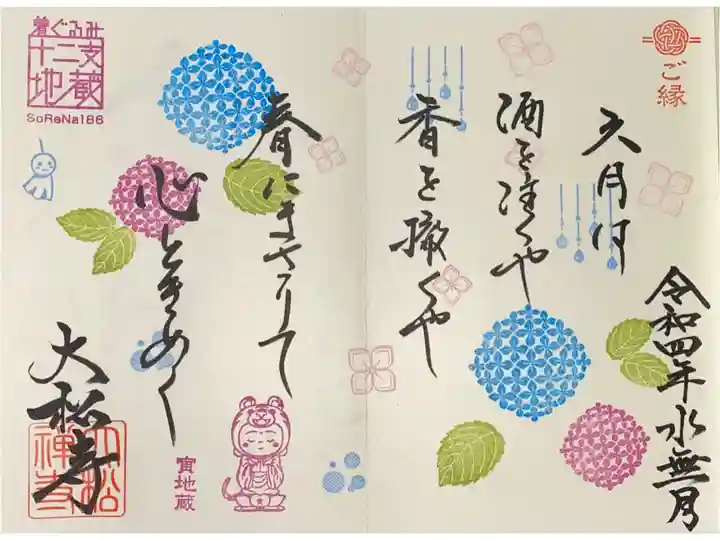 ご縁
令和四年水無月
六月は
酒を注くや
香を撒くや
春にまさりて
心ときめく
大松寺
大松禅寺
着ぐるみ
十二支
地蔵
SoReNa186
寅地蔵